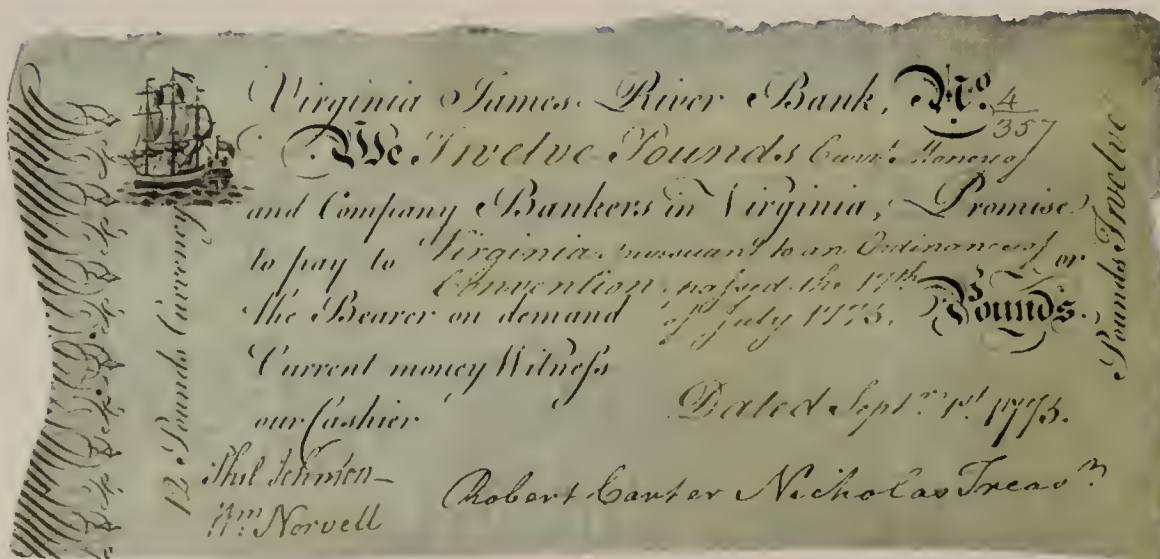 Virginia James River Bank, No. 4
357
We Twelve Pounds Curr.t Money of
and Company Bankers in Virginia, Promise
to pay to Virginia, pursuant to an Ordinance of or
Convention, passed the 17th
the Bearer on demand of July 1775. Pounds.
Current money Witneſs
our Cashier
Dated Sept.r 1st 1775.
Phil Johnson
Wm Norvell
Robert Carter Nicholas Treasr
12 Pounds Currency
Pounds Twelve